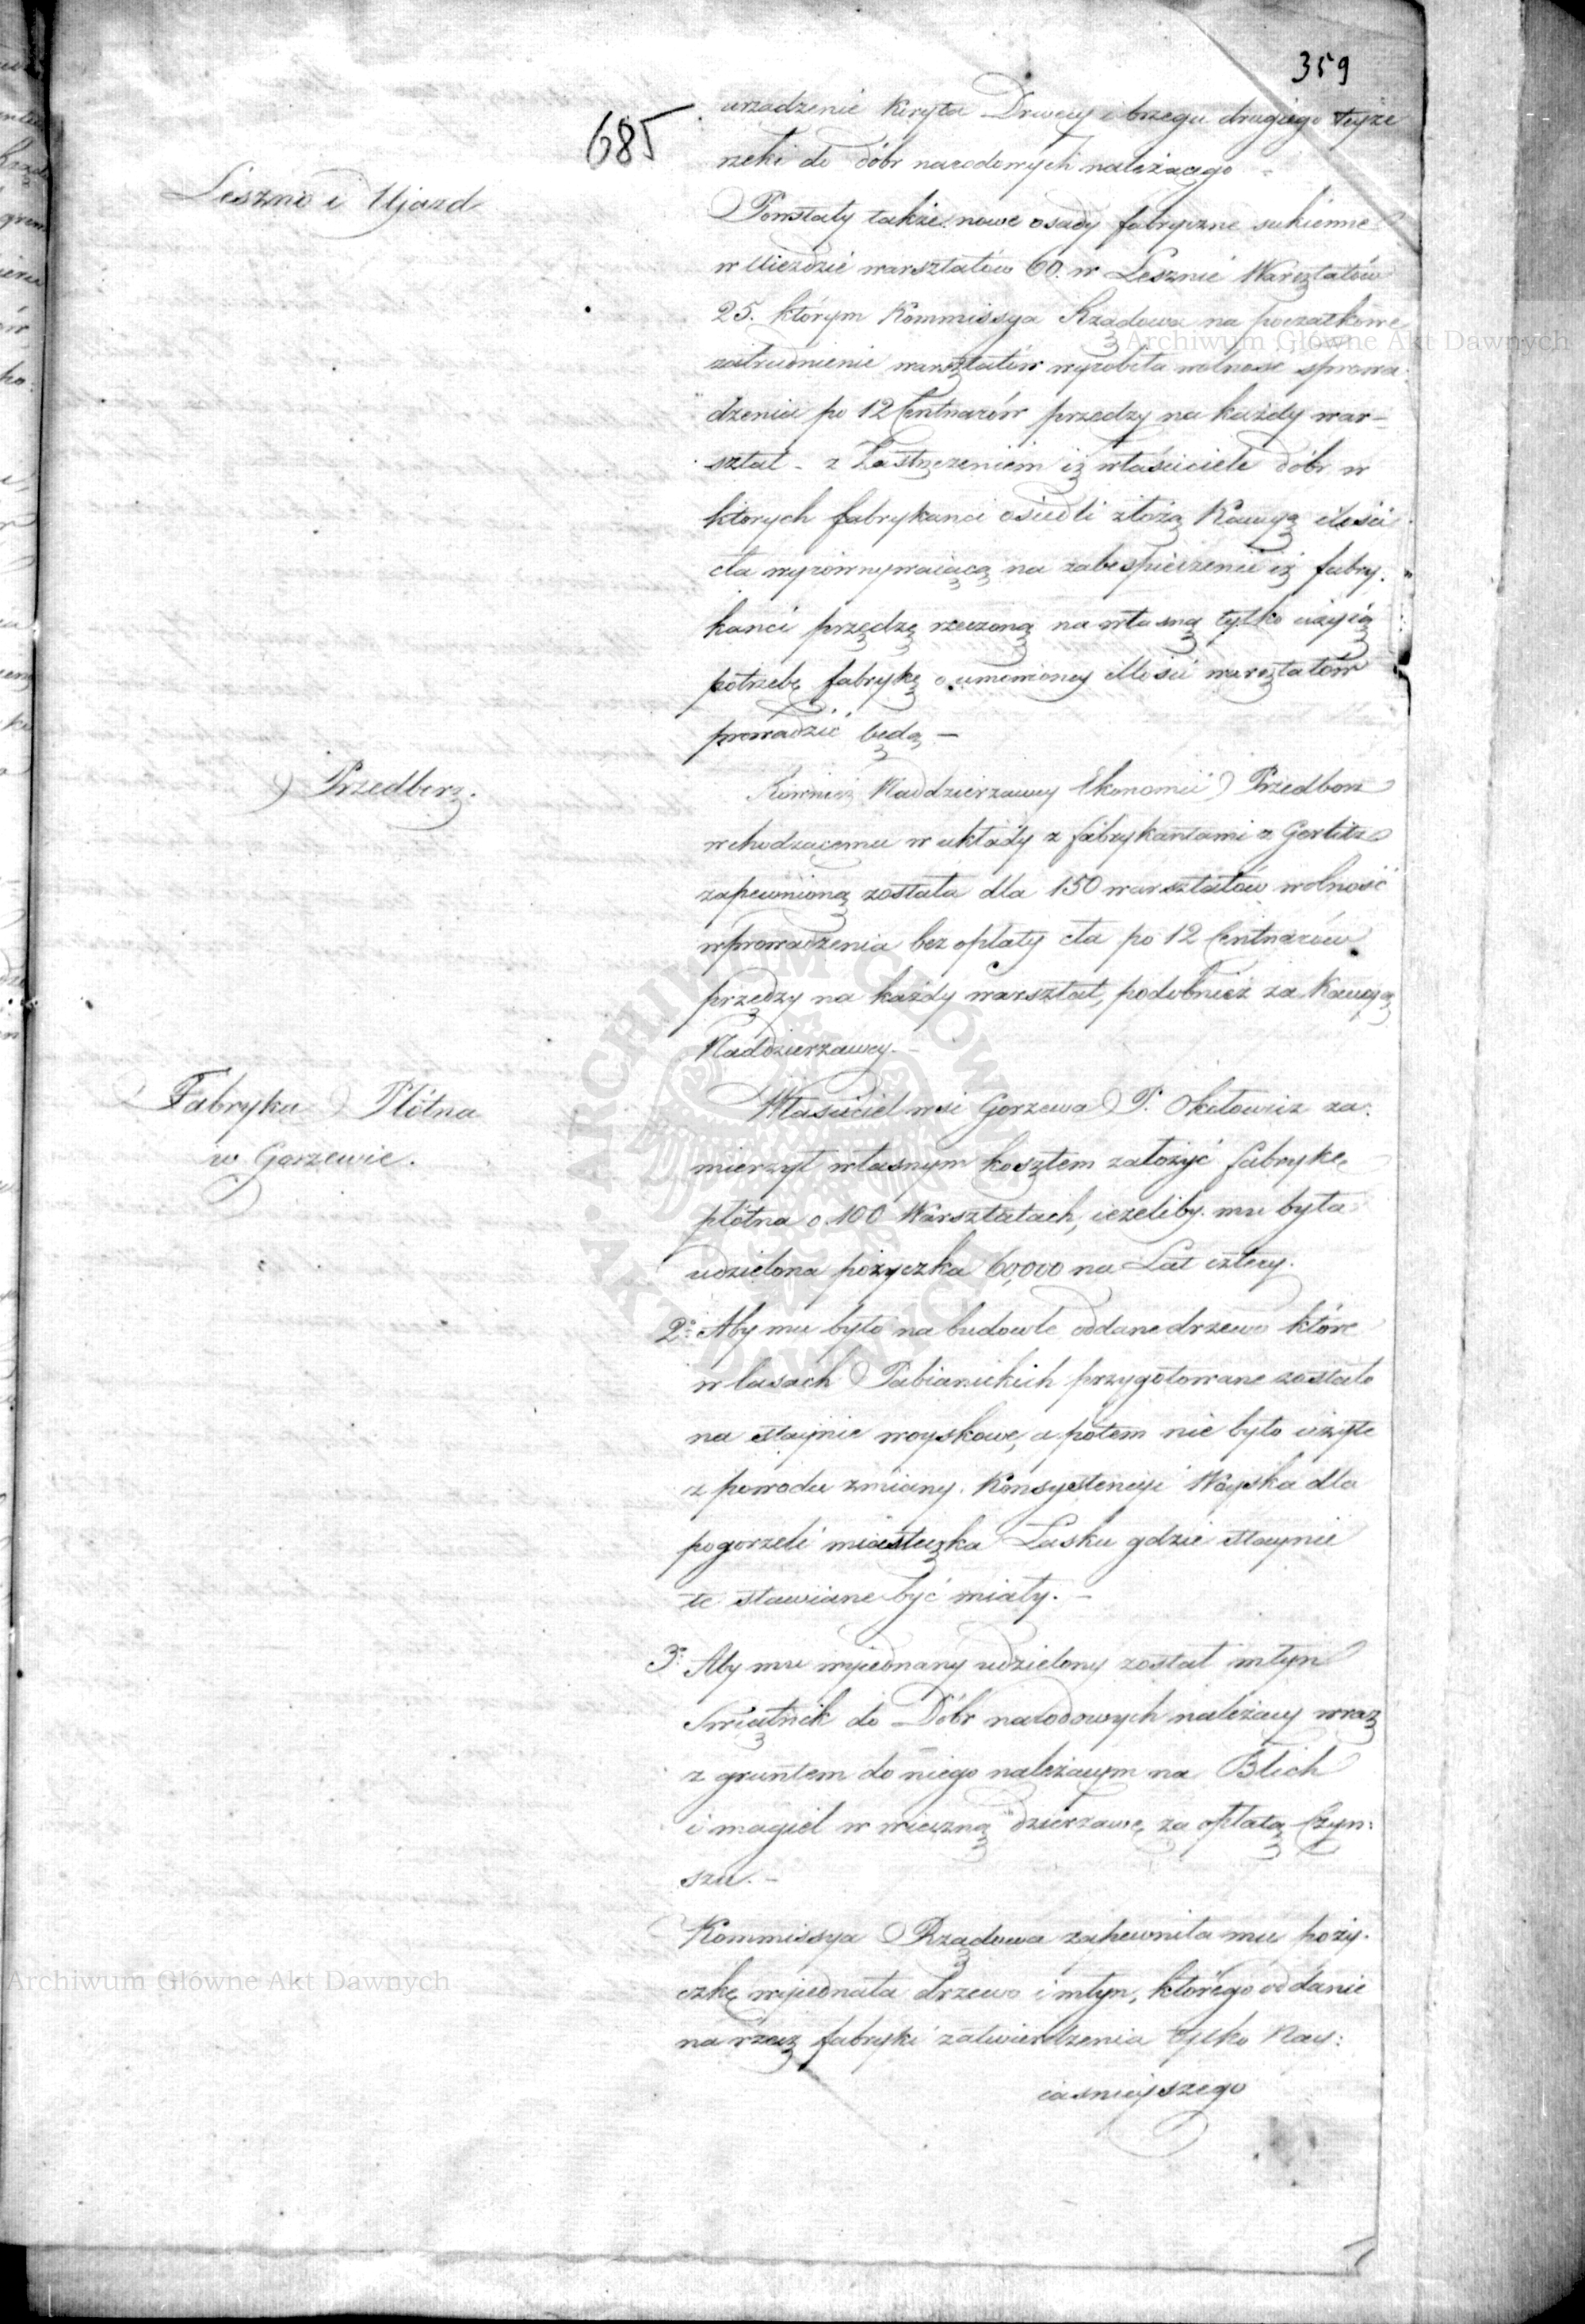 359
685
urządzenie Koryta Drwęcy i brzegu drugiego teyże
rzeki do dóbr narodowych należącego -
Leszno i Ujazd
Powstały także nowe osady fabryczne sukienne
w Uieździe warsztatów 60. w Lesznie Warsztatów
25. którym Kommissya Rządowa na początkowe
zatrudnienie warsztatów wyrobiła wolność sprowa-
dzenia po 12 Centnarów przędzy na każdy war-
sztat - z Zastrzeżeniem iż właściciele dóbr w
których fabrykanci osiedli złożą Kaucyą ilości
cła wyrównywaiącą na zabespieczenie iż fabry-
kanci przędzę rzeczoną na własną tylko użyią
potrzebę fabrykę o umowioney illości warsztatów
prowadzić będą -
Przedborz.
Równie Naddzierzawcy Ekonomii Przedborz
wchodzącemu w układy z fabrykantami z Gorlitz
zapewnioną została dla 150 warsztatów wolność
wprowadzenia bez opłaty cła po 12 Centnarów
przędzy na każdy warsztat, podobnież za Kaucyą
Naddzierzawcy. -
Fabryka Płótna
w Gorzewie.
Właściciel wsi Gorzewa P. Okołowicz za-
mierzył własnym kosztem założyć fabrykę
płótna o 100 Warsztatach, ieżeliby mu była
udzielona pożyczka 60,000 na Lat cztery.
2º Aby mu było na budowle oddane drzewo które
w lasach Pabianickich przygotowane zostało
na staynie woyskowe, a potem nie było użyte
z powodu zmiany Konsystencyi Woyska dla
pogorzeli miasteczka Lasku gdzie staynie
te stawiane być miały. -
3º Aby mu wyiednany udzielony został młyn
Swiątnik do Dóbr narodowych należący wraz
z gruntem do niego należącym na Blich
i magiel w wieczną dzierzawę za opłatą Czyn:
szu. -
Kommissya Rządowa zapewniła mu poży-
czkę wyiednała drzewo i młyn, którego oddanie
na rzecz fabryki zatwierdzenia tylko Nay:
iasnieyszego
Archiwum Główne Akt Dawnych
Archiwum Główne Akt Dawnych
ARCHIWUM GŁÓWNE AKT DAWNYCH